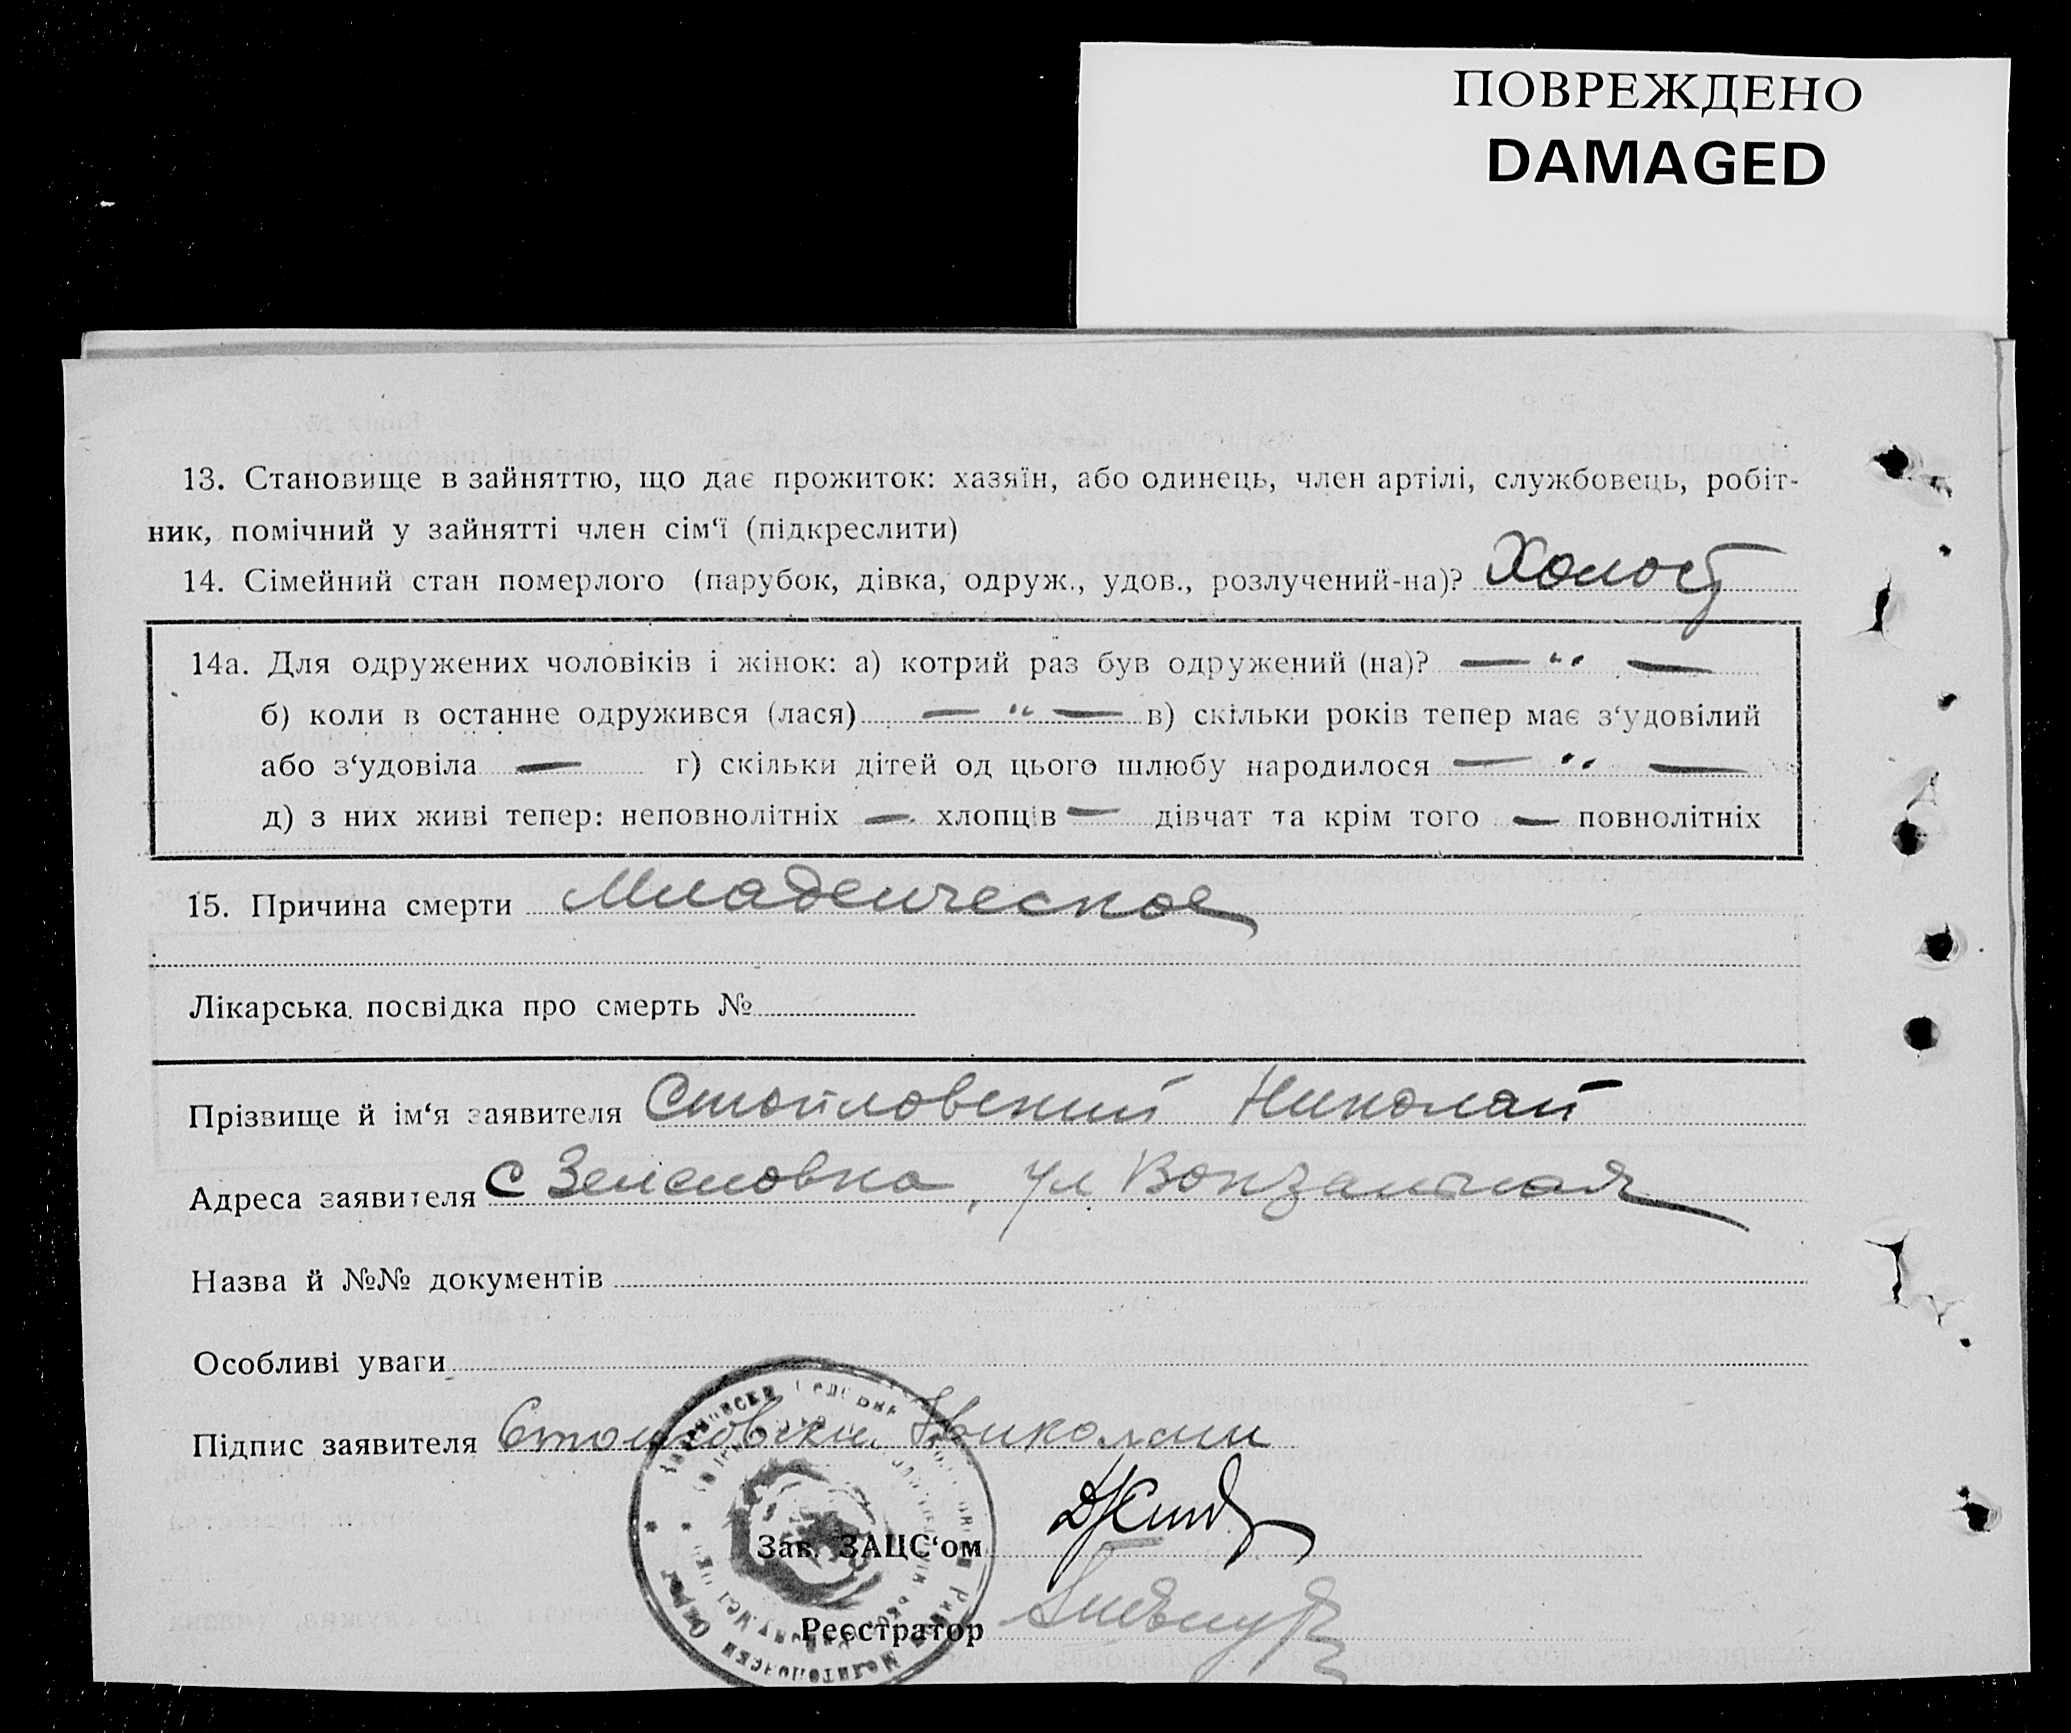 ПОВРЕЖДЕНО
DAMAGED
13. Становище в зайняттю, що дає прожиток: хазяїн, або одинець, член артілі, службовець, робіт-
ник, помічний у зайнятті член сім‘ї (підкреслити)
14. Сімейний стан померлого (парубок, дівка, одруж., удов., розлучений-на)? Холост
14а. Для одружених чоловіків і жінок: а) котрий раз був одружений (на)? — " —
б) коли в останнє одружився (лася) — " — в) скільки років тепер має з‘удовілий
або з‘удовіла — г) скільки дітей од цього шлюбу народилося — " —
д) з них живі тепер: неповнолітніх — хлопців — дівчат та крім того — повнолітніх
15. Причина смерти Младенческое
Лікарська посвідка про смерть №
Прізвище й ім‘я заявителя Стойловский Николай
Адреса заявителя с Зеленовка, ул Вокзальная
Назва й №№ документів
Особливі уваги
Підпис заявителя Стойловски Николаи
Зав. ЗАЦС‘ом
Реєстратор